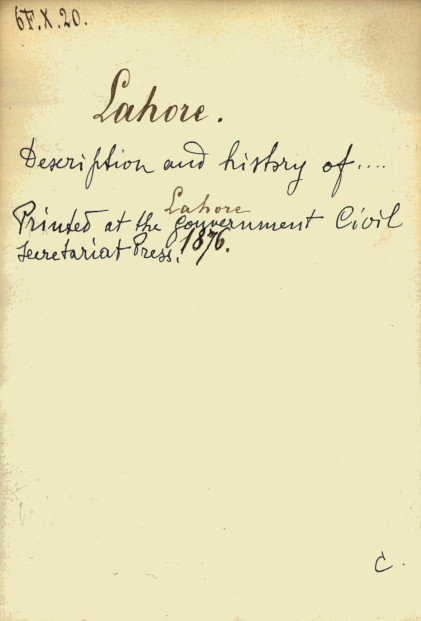 6F.X.20.
Lahore.
Description and history of....
Lahore
Printed at the gouvernment Civil
Secretariat Press. 1876.
C.